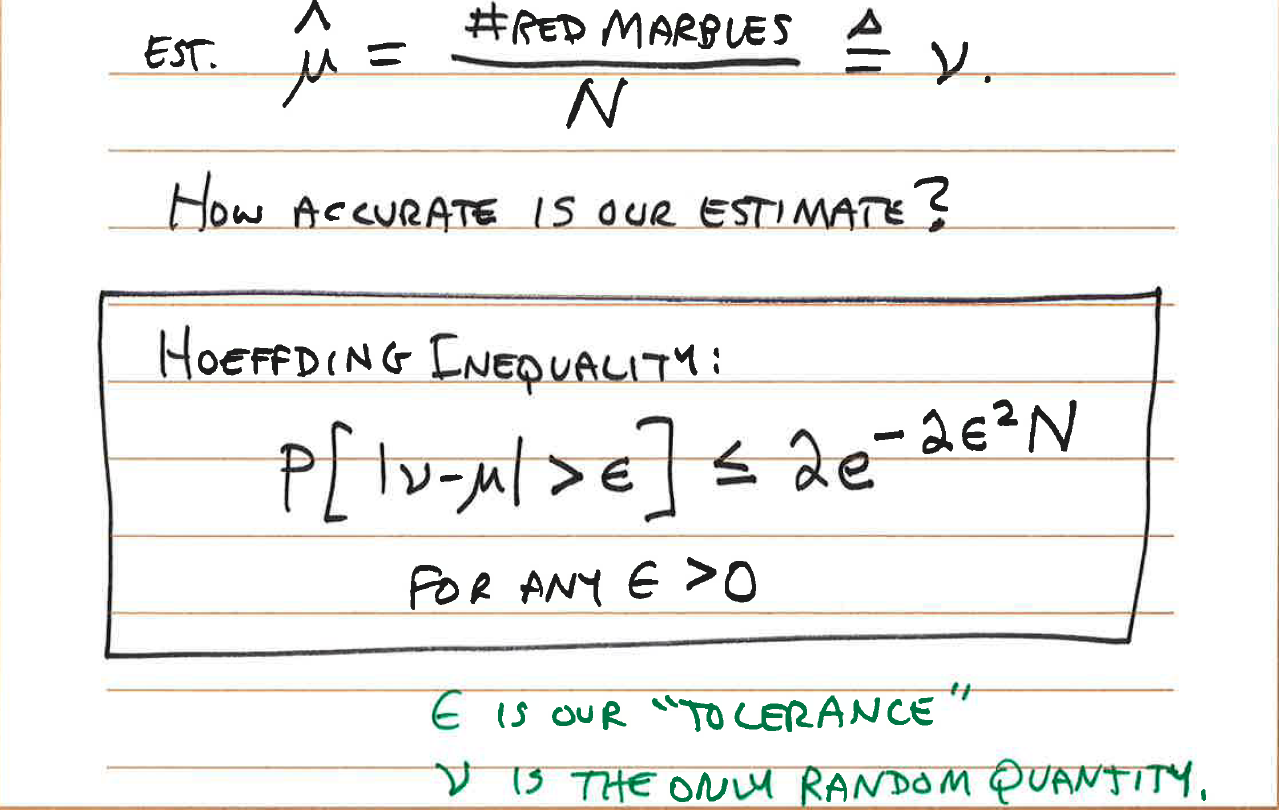 EST. μ̂ = #RED MARBLES / N ≜ ν.
HOW ACCURATE IS OUR ESTIMATE?
HOEFFDING INEQUALITY:
P[ |ν-μ| > ϵ ] ≤ 2e^{-2ϵ²N}
FOR ANY ϵ > 0
ϵ IS OUR "TOLERANCE"
ν IS THE ONLY RANDOM QUANTITY.